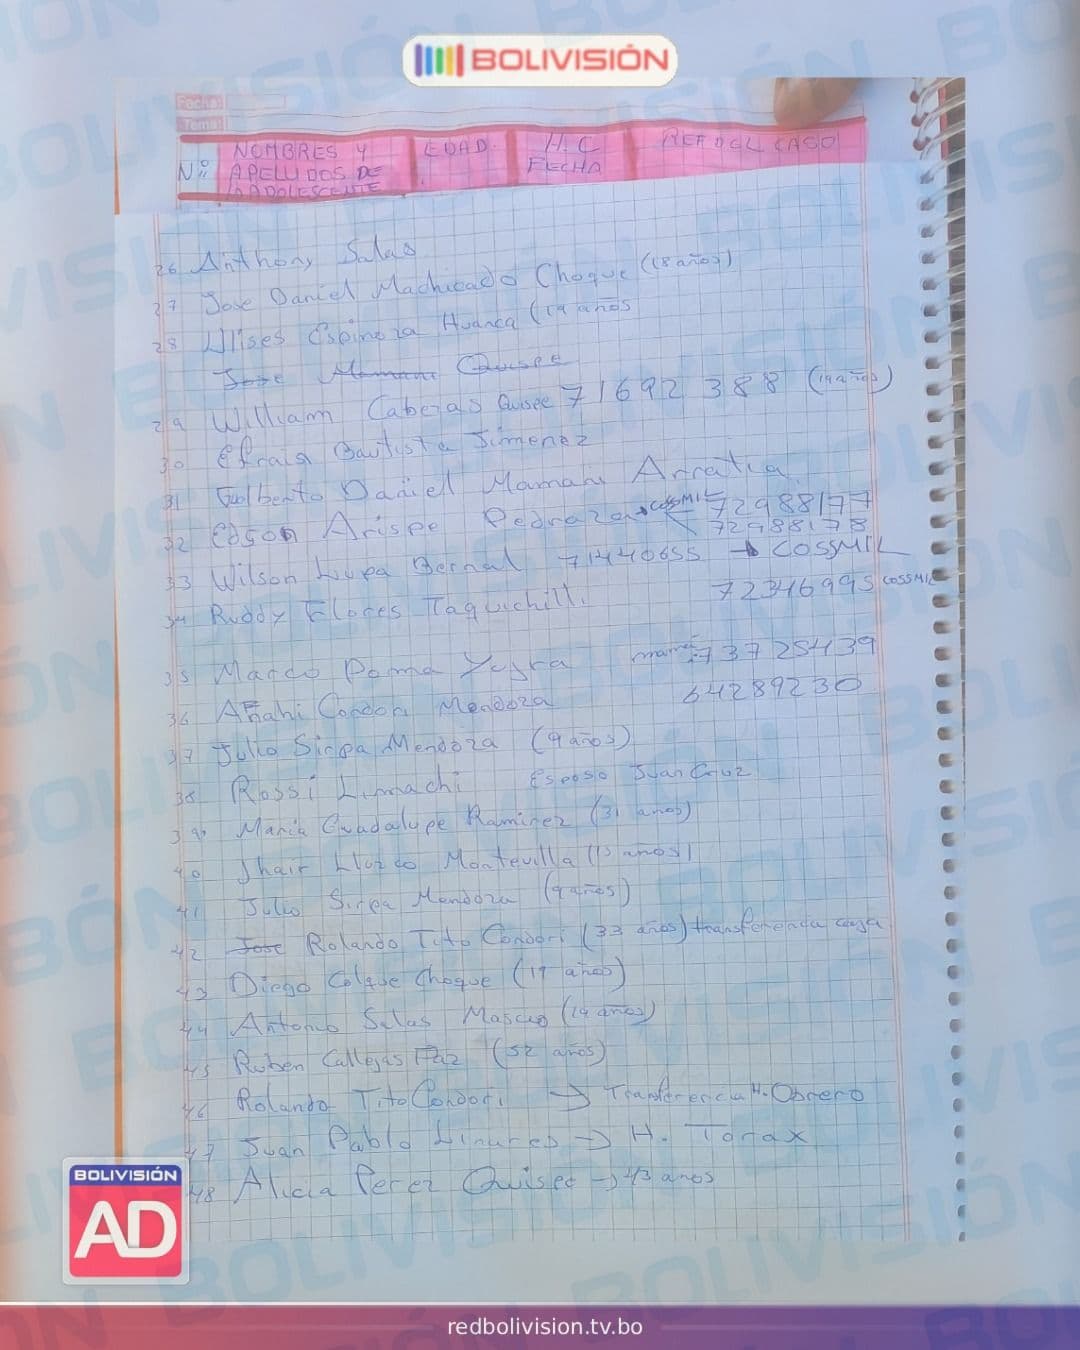 BOLIVISIÓN
Fecha:
Tema:
Nº NOMBRES Y APELLIDOS DE ADOLESCENTE EDAD. H.C FECHA REF DEL CASO
26 Anthony Salas
27 Jose Daniel Machicado Choque (18 años)
28 Ulises Espinoza Huanca (19 años
Jose Mamani Quispe
29 William Caberas Quispe 71692388 (19 años)
30 Efrain Bautista Jimenez
31 Gualberto Daniel Mamani Arratia
32 Edson Arispe Pedraza COSSMIL 72988177
72988178
33 Wilson Lupa Bernal 71440655 → COSSMIL
34 Ruddy Flores Taquichilli 72346995 COSSMIL
35 Marco Poma Yugra mamá: 73725439
36 Anahi Condori Mendoza 64289230
37 Julio Sirpa Mendoza (9 años)
38 Rossi Limachi Esposo Juan Cruz
39 Maria Guadalupe Ramirez (31 años)
40 Jhair Montevilla (15 años)
41 Julio Sirpa Mendoza (9 años)
42 Jose Rolando Tito Condori (33 años) transferencia
43 Diego Colque Choque (19 años)
44 Antonio Salas (19 años)
45 Ruben Callejas Paz (52 años)
46 Rolando Tito Condori → Transferencia H. Obrero
47 Juan Pablo Linares → H. Torax
48 Alicia Perez Quispe → 43 anos
BOLIVISIÓN
AD
redbolivision.tv.bo